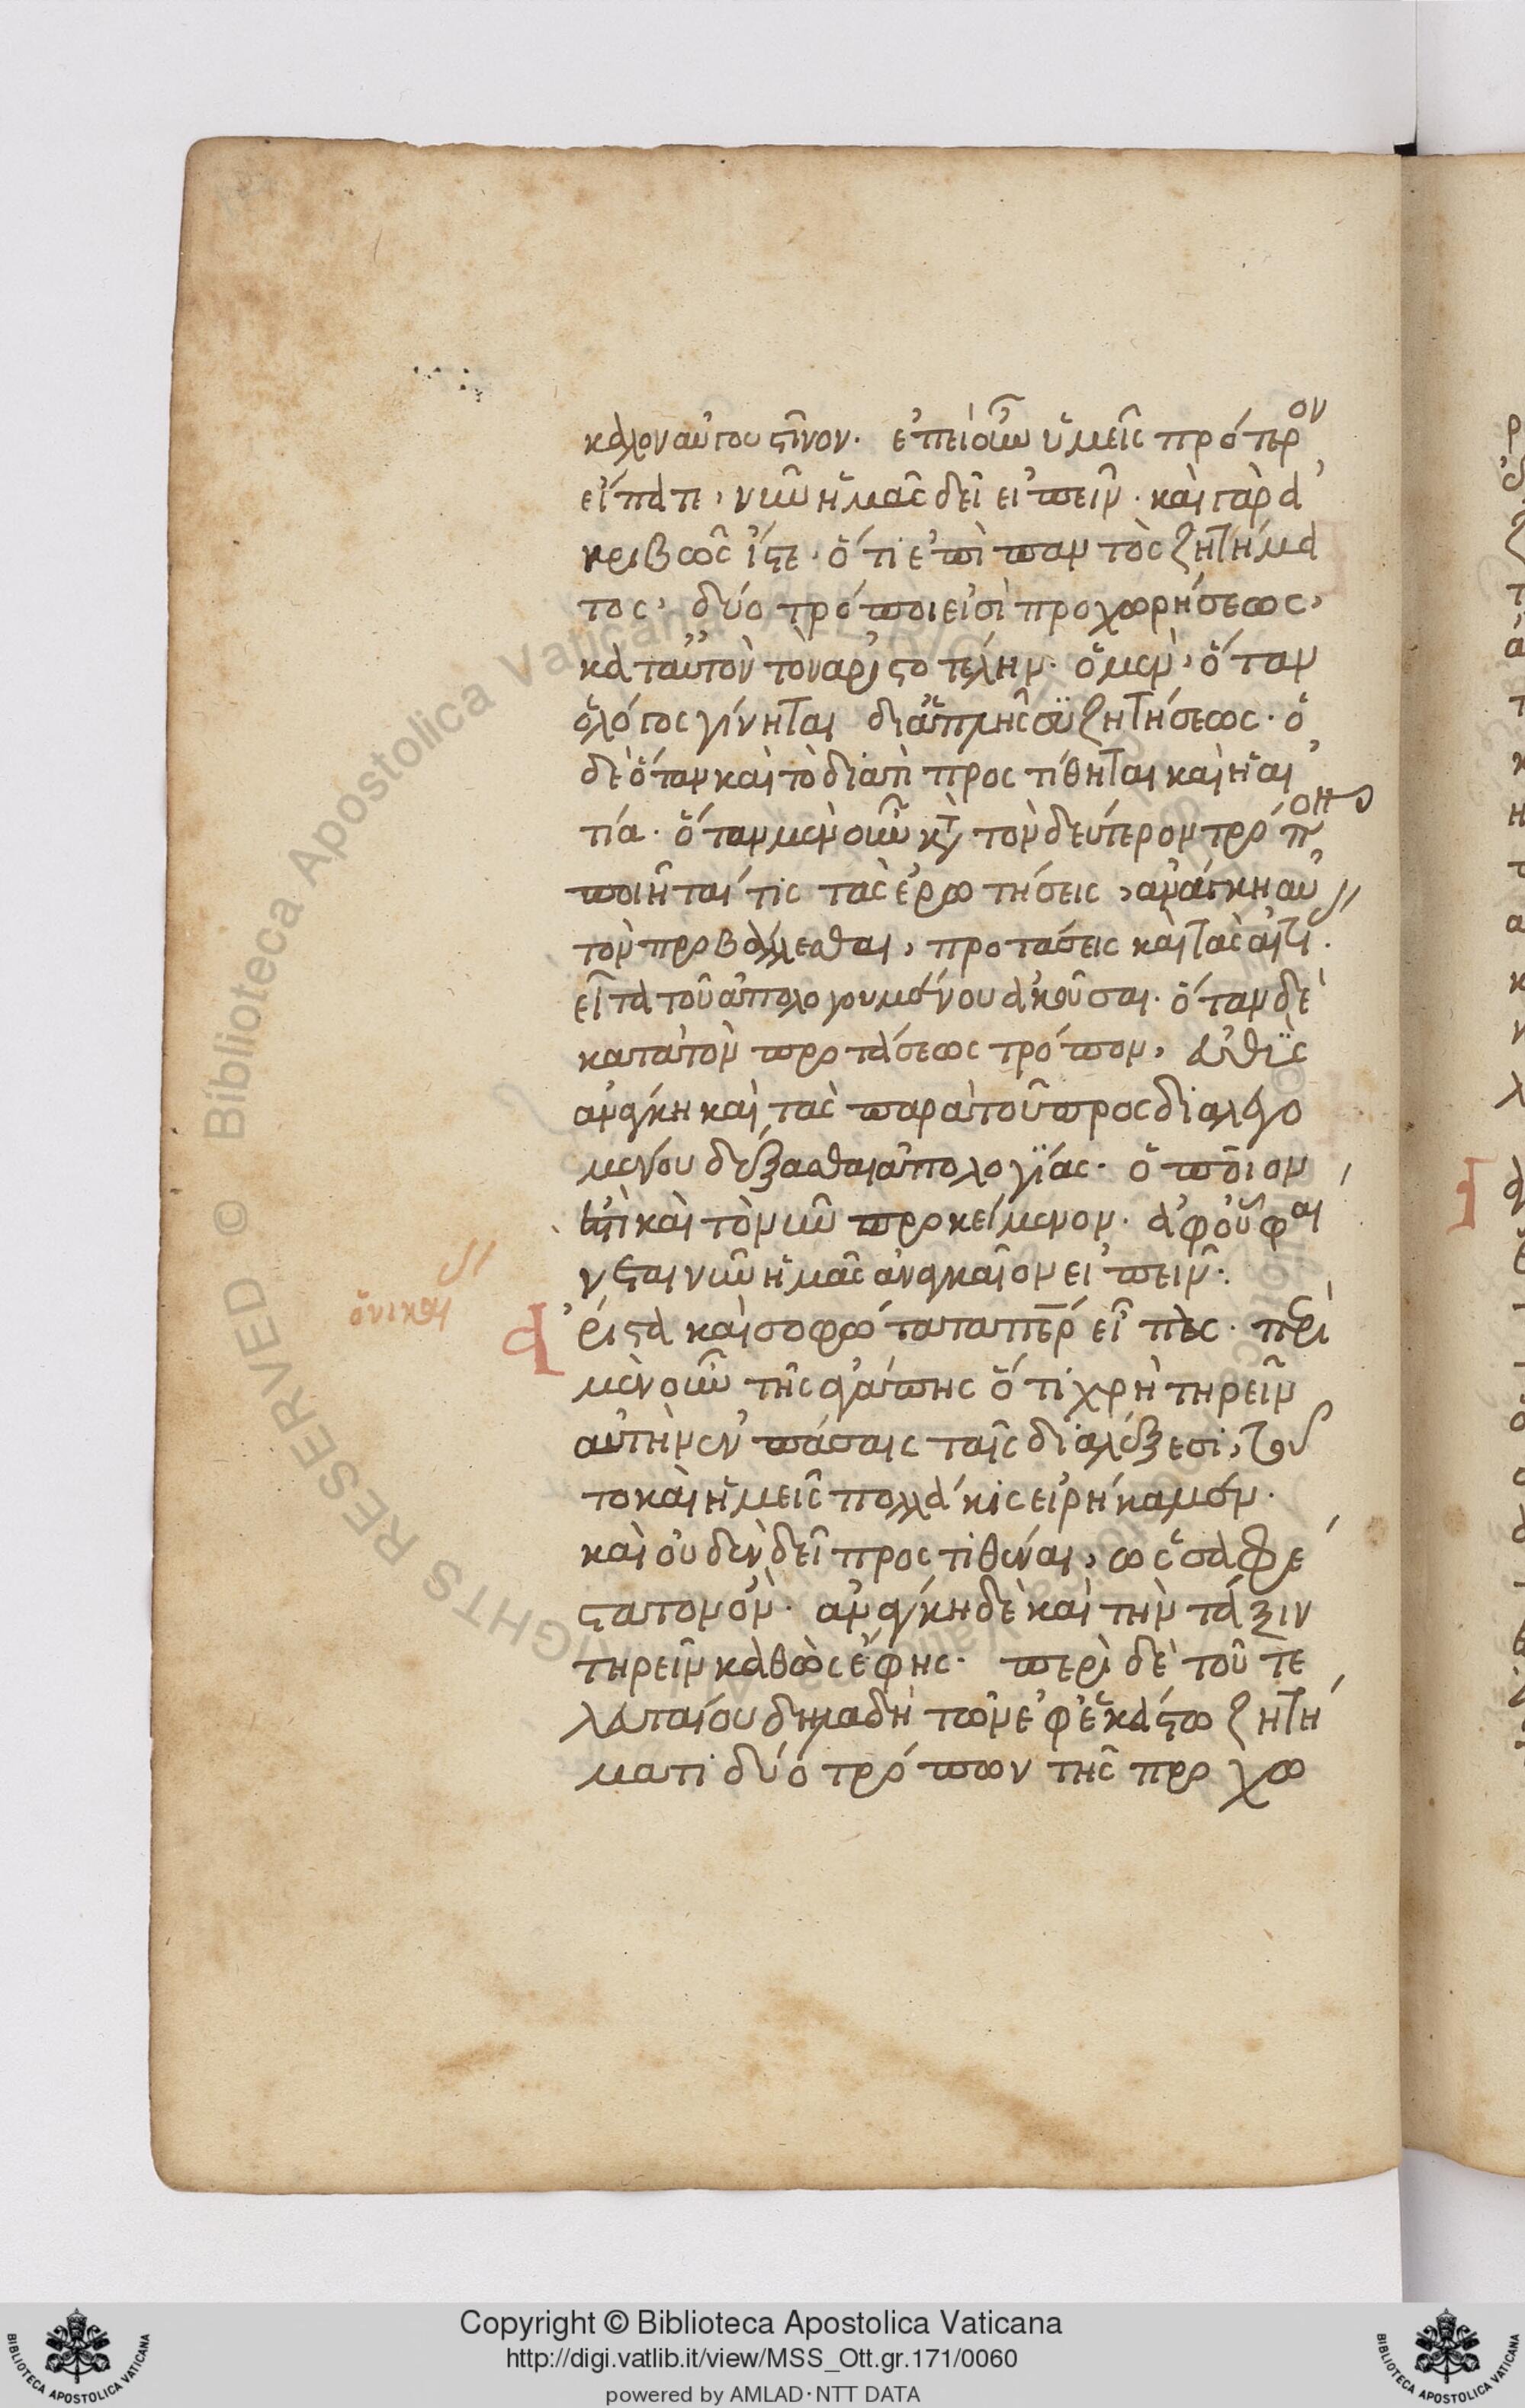 καλον αὐτου ϛῖνον. ἐπεὶ οὖν ὑμεῖς πρότερον
εἴπατε, νῦν ἡμᾶς δεῖ εἰπεῖν. καὶ γὰρ ἀ
κριβῶς ἴστε. ὅτι ἐπὶ παντὸς ζητήμα
τος, δύο τρόποι εἰσὶ προχωρήσεως,
κατ' αὐτὸν τὸν ἀριστοτέλην. ὁ μὲν, ὅταν
ὁ λόγος γίνηται δι' ἁπλῆς συζητήσεως. ὁ
δὲ ὅταν καὶ τὸ διατὶ προστίθηται καὶ ἡ αἰ
τία. ὅταν μὲν οὖν κατὰ τὸν δεύτερον τρόπον
ποιῆται τίς τὰς ἐρωτήσεις, ἀνάγκη αὐ
τὸν προβάλλεσθαι, προτάσεις καὶ τὰς αἰτί.
εἶτα τοῦ ἀπολογουμένου ἀκοῦσαι. ὅταν δὲ
κατὰ τὸν προτάσεως τρόπον, αὖθις
ἀνάγκη καὶ τὰς παρὰ τοῦ προσδιαλεγο
μένου δέξασθαι ἀπολογίας. ὁποῖον
ἐστὶ καὶ τὸ νῦν προκείμενον. ἀφ' οὗ φαί
νεται νῦν ἡμᾶς ἀναγκαῖον εἰπεῖν.
ὄνικαι
ἄριστα καὶ σοφώτατα πέρ εἶπες. περὶ
μὲν οὖν τῆς ἀγάπης ὅτι χρὴ τηρεῖν
αὐτὴν ἐν πάσαις ταῖς διαλέξεσι, τοῦ
το καὶ ἡμεῖς πολλάκις εἰρήκαμεν.
καὶ οὐδὲν δεῖ προστιθέναι, ὡς σαφέ
στατον ὄν. ἀνάγκη δὲ καὶ τὴν τάξιν
τηρεῖν καθὼς ἔφης. περὶ δὲ τοῦ τε
λευταίου δηλαδὴ τῶν ἐφ' ἑκάστω ζητή
ματι δύο τρόπων τῆς προχω
Copyright © Biblioteca Apostolica Vaticana
http://digi.vatlib.it/view/MSS_Ott.gr.171/0060
powered by AMLAD·NTT DATA